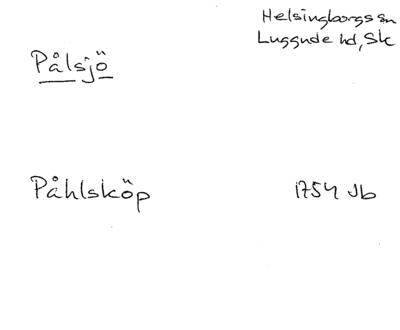 Helsingborgs sn
Luggude hd, Sk
Pålsjö
Påhlsköp 1754 Jb